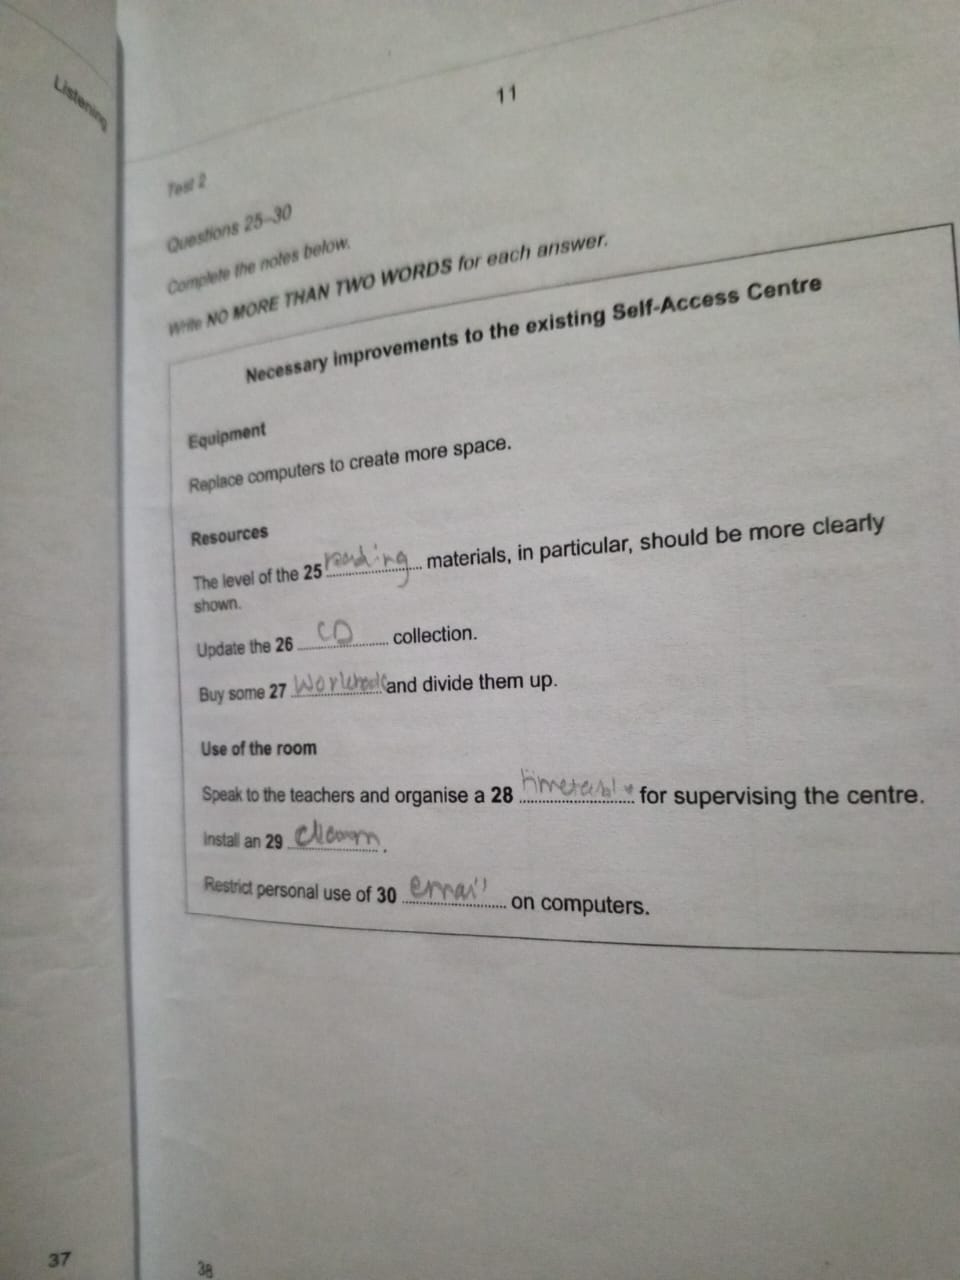 Listening
11
Test 2
Questions 25–30
Complete the notes below.
Write NO MORE THAN TWO WORDS for each answer.
Necessary improvements to the existing Self-Access Centre
Equipment
Replace computers to create more space.
Resources
The level of the 25 reading materials, in particular, should be more clearly
shown.
Update the 26 CD collection.
Buy some 27 and divide them up.
Use of the room
Speak to the teachers and organise a 28 timetable for supervising the centre.
Install an 29 .
Restrict personal use of 30 email on computers.
37
38